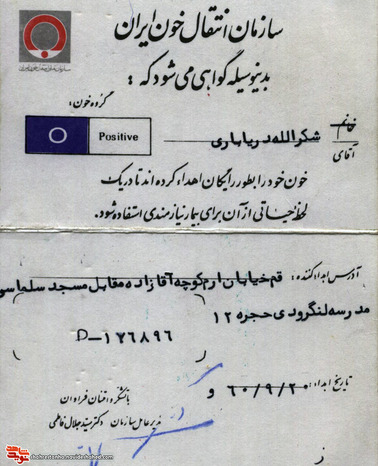 سازمان انتقال خون ایران
بدینوسیله گواهی می شود که :
گروه خون :
O Positive
خانم
آقای شکرالله دریاباری
خون خود را بطور رایگان اهداء کرده اند تا در یک
لحظه حیاتی از آن برای بیمار نیازمندی استفاده شود.
آدرس اهداء کننده : قم خیابان ارم کوچه آقازاده مقابل مسجد سلماسی
مدرسه لنگرودی حجره ۱۲
D-۱۷۶۸۹۶
تاریخ اهداء : ۶۰/۹/۲۰ و
با تشکر و امتنان فراوان
مدیر عامل سازمان دکتر سید جلال فاطمی